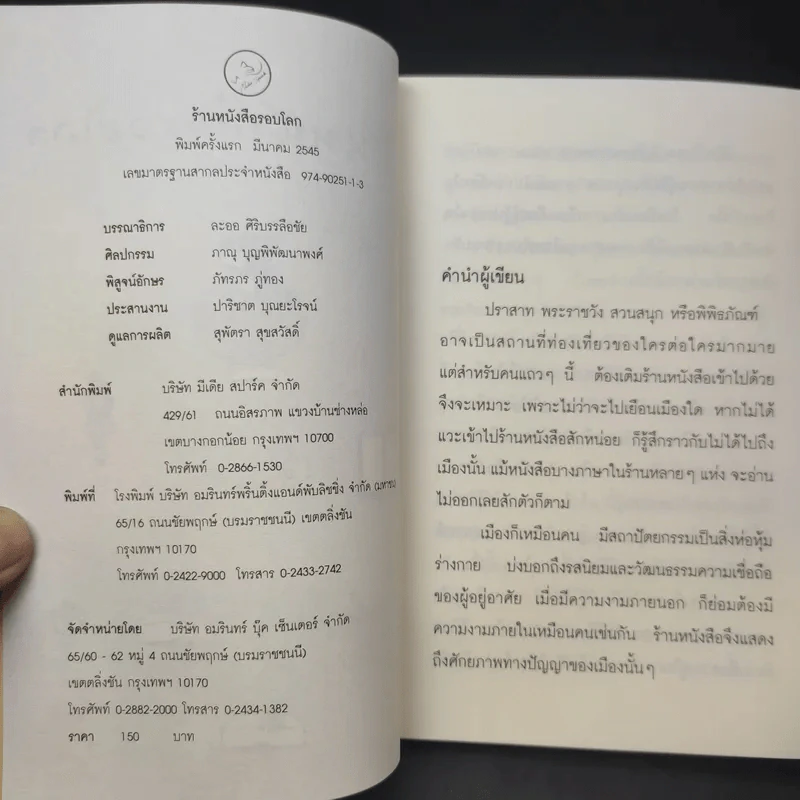 ร้านหนังสือรอบโลก
พิมพ์ครั้งแรก มีนาคม 2545
เลขมาตรฐานสากลประจำหนังสือ 974-90251-1-3
บรรณาธิการ ละออ ศิริบรรลือชัย
ศิลปกรรม ภาณุ บุญพิพัฒนาพงศ์
พิสูจน์อักษร ภัทรภร ภู่ทอง
ประสานงาน ปาริชาต บุณยะโรจน์
ดูแลการผลิต สุพัตรา สุขสวัสดิ์
สำนักพิมพ์ บริษัท มีเดีย สปาร์ค จำกัด
429/61 ถนนอิสรภาพ แขวงบ้านช่างหล่อ
เขตบางกอกน้อย กรุงเทพฯ 10700
โทรศัพท์ 0-2866-1530
พิมพ์ที่ โรงพิมพ์ บริษัท อมรินทร์พริ้นติ้งแอนด์พับลิชชิ่ง จำกัด (มหาชน)
65/16 ถนนชัยพฤกษ์ (บรมราชชนนี) เขตตลิ่งชัน
กรุงเทพฯ 10170
โทรศัพท์ 0-2422-9000 โทรสาร 0-2433-2742
จัดจำหน่ายโดย บริษัท อมรินทร์ บุ๊ค เซ็นเตอร์ จำกัด
65/60 - 62 หมู่ 4 ถนนชัยพฤกษ์ (บรมราชชนนี)
เขตตลิ่งชัน กรุงเทพฯ 10170
โทรศัพท์ 0-2882-2000 โทรสาร 0-2434-1382
ราคา 150 บาท
คำนำผู้เขียน
ปราสาท พระราชวัง สวนสนุก หรือพิพิธภัณฑ์
อาจเป็นสถานที่ท่องเที่ยวของใครต่อใครมากมาย
แต่สำหรับคนแถวๆ นี้ ต้องเติมร้านหนังสือเข้าไปด้วย
จึงจะเหมาะ เพราะไม่ว่าจะไปเยือนเมืองใด หากไม่ได้
แวะเข้าไปร้านหนังสือสักหน่อย ก็รู้สึกราวกับไม่ได้ไปถึง
เมืองนั้น แม้หนังสือบางภาษาในร้านหลายๆ แห่ง จะอ่าน
ไม่ออกเลยสักตัวก็ตาม
เมืองก็เหมือนคน มีสถาปัตยกรรมเป็นสิ่งห่อหุ้ม
ร่างกาย บ่งบอกถึงรสนิยมและวัฒนธรรมความเชื่อถือ
ของผู้อยู่อาศัย เมื่อมีความงามภายนอก ก็ย่อมต้องมี
ความงามภายในเหมือนคนเช่นกัน ร้านหนังสือจึงแสดง
ถึงศักยภาพทางปัญญาของเมืองนั้นๆ